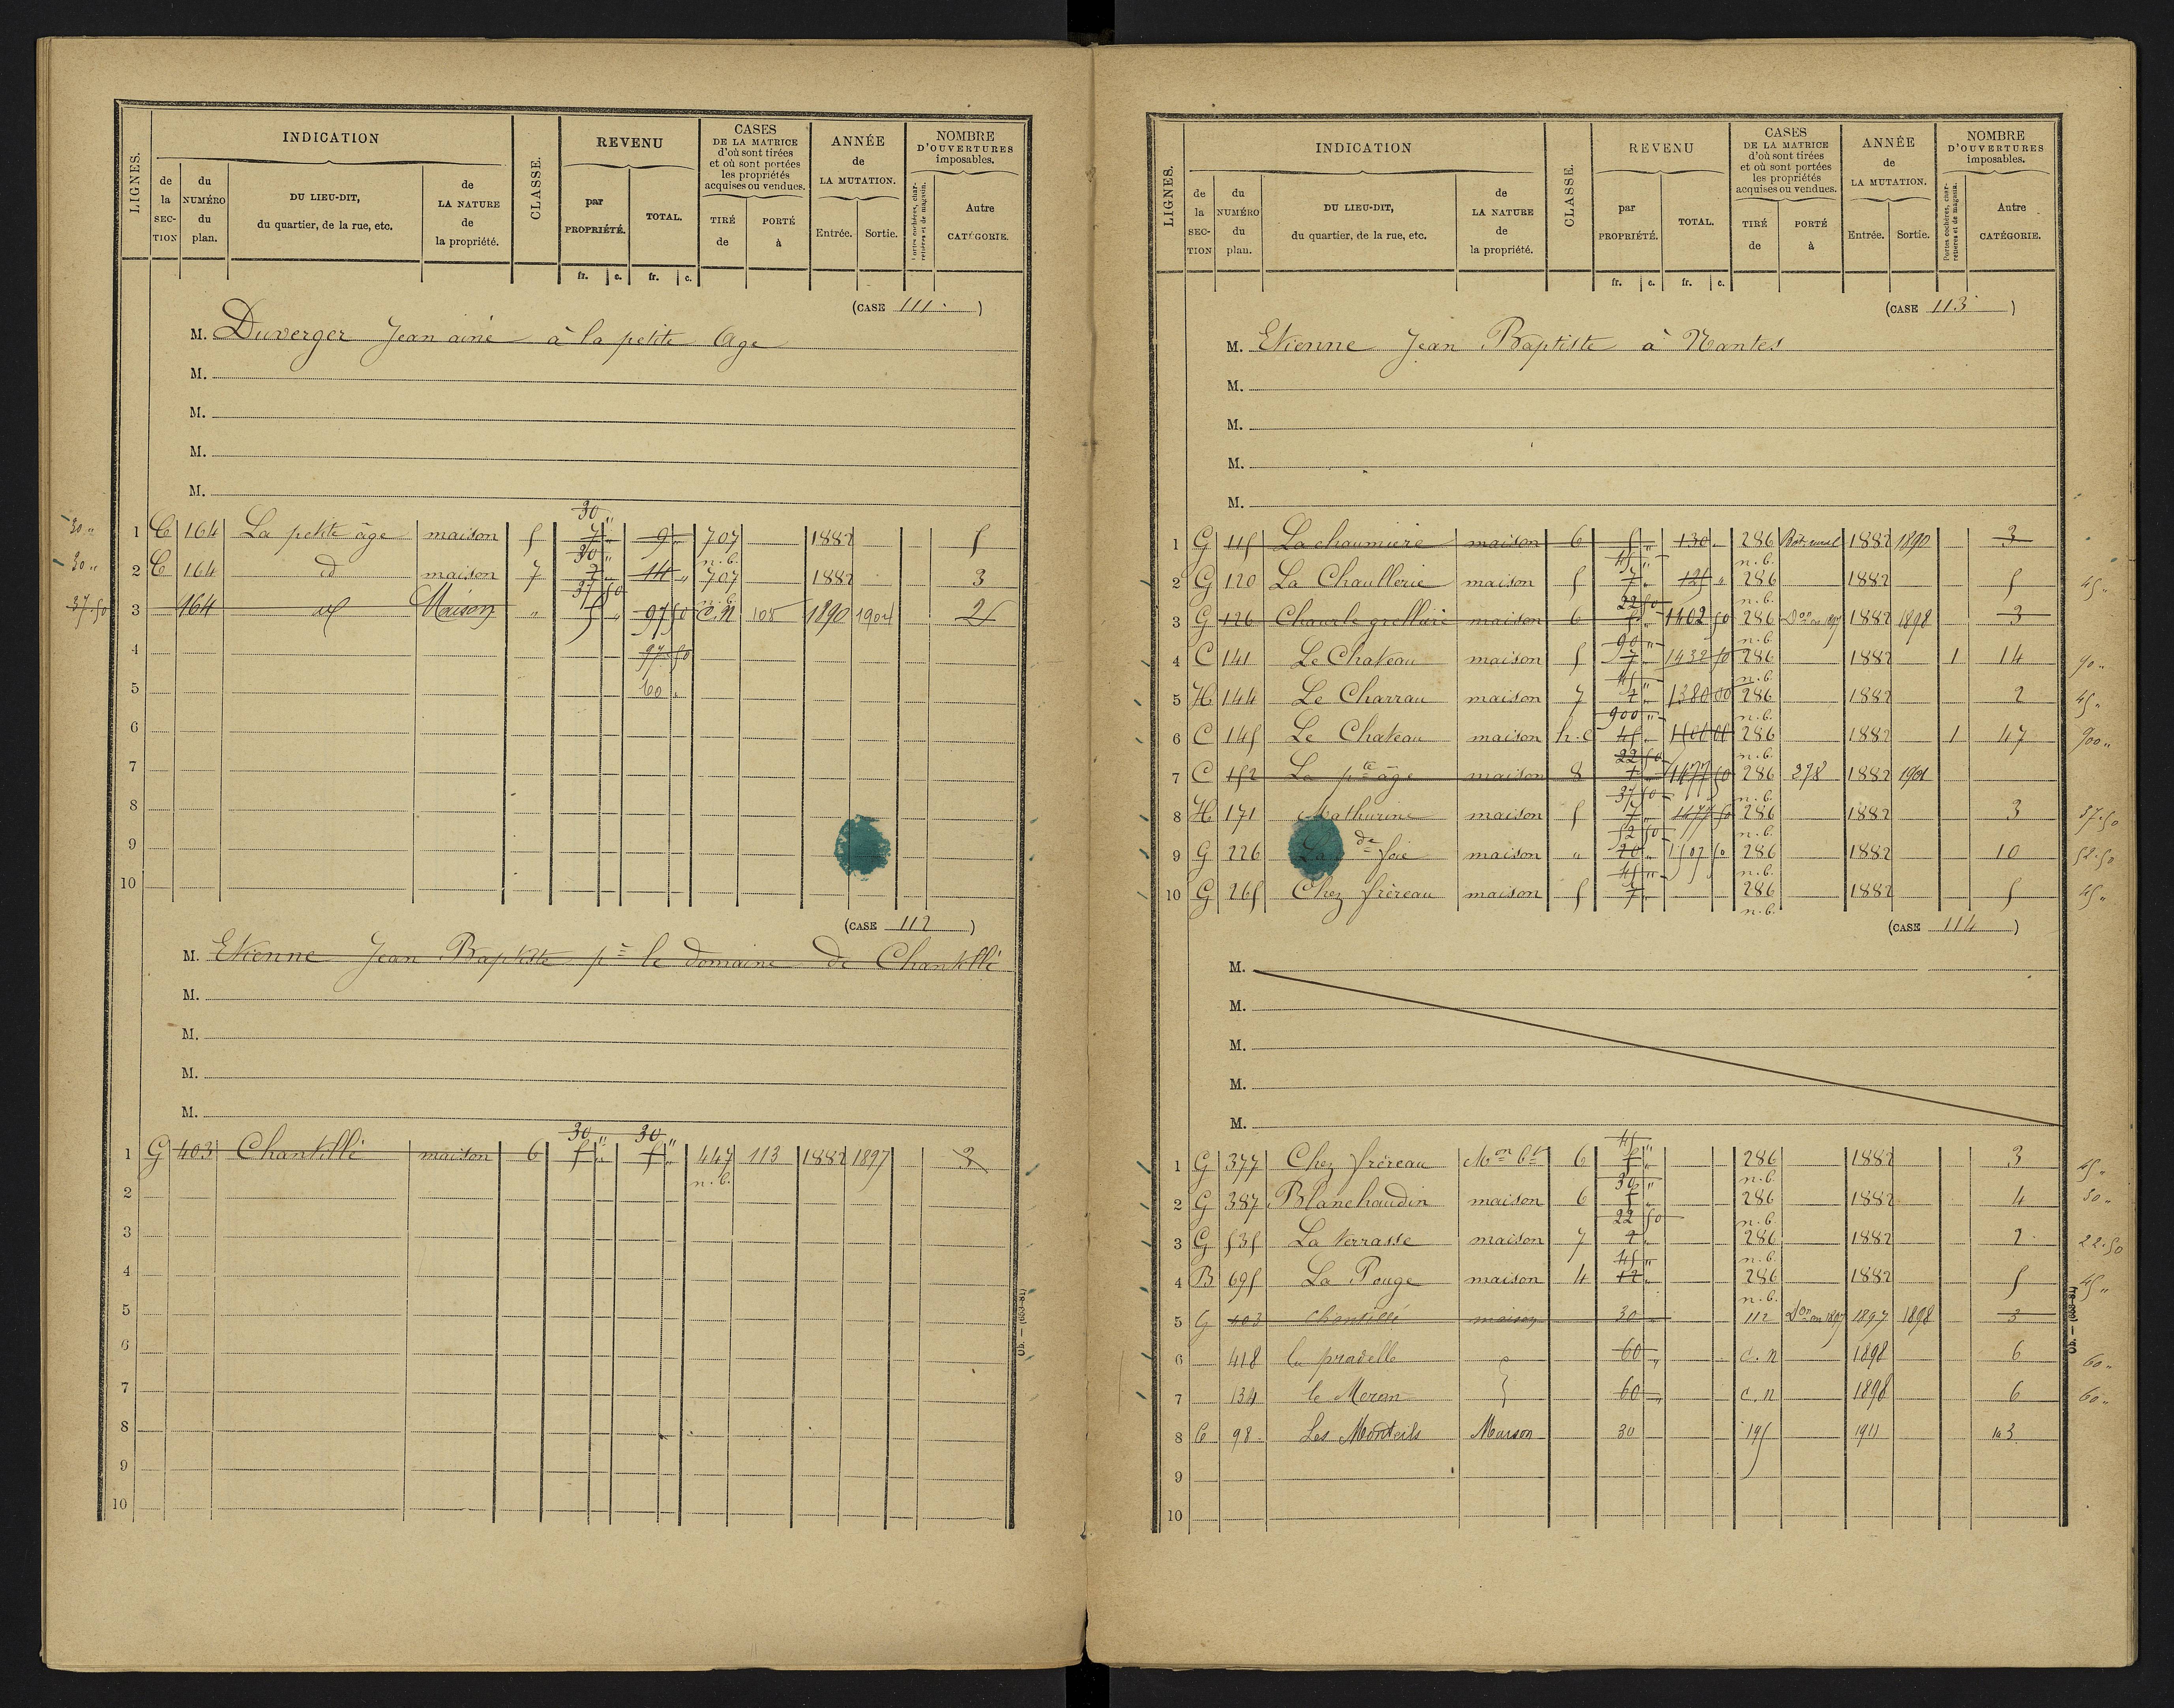 LIGNES. INDICATION CLASSE. REVENU CASES DE LA MATRICE d'où sont tirées et où sont portées les propriétés acquises ou vendues. ANNÉE de LA MUTATION. NOMBRE D'OUVERTURES imposables.
de la SECTION du NUMÉRO du plan. DU LIEU-DIT, du quartier, de la rue, etc. de LA NATURE de la propriété. par PROPRIÉTÉ. TOTAL. TIRÉ de PORTÉ à Entrée. Sortie. Portes cochères, charretières et de magasin. Autre CATÉGORIE.
fr. c. fr. c.
(CASE 111)
M. Duverger Jean ainé à la petite Age
M.
M.
M.
M.
30 "
30 " 1 C 164 La petite âge maison 5 7 " 9 " 707 1882 5
30 " n.b.
30 " 2 C 164 d maison 7 7 " 14 " 707 1882 3
37 50 n.b.
37.50 3 164 d Maison " 5 " 97 50 C.N 108 1890 1904 2
4 97 50
5 60 "
6
7
8
9
10
(CASE 112)
M. Etienne Jean Baptiste pr le domaine de Chantillé
M.
M.
M.
M.
30 " 30 "
1 G 403 Chantillé maison 6 5 " 5 " 447 113 1882 1897 3
n.b.
2
3
4
5
6
7
8
9
10
Ob. — (663-81)
LIGNES. INDICATION CLASSE. REVENU CASES DE LA MATRICE d'où sont tirées et où sont portées les propriétés acquises ou vendues. ANNÉE de LA MUTATION. NOMBRE D'OUVERTURES imposables.
de la SECTION du NUMÉRO du plan. DU LIEU-DIT, du quartier, de la rue, etc. de LA NATURE de la propriété. par PROPRIÉTÉ. TOTAL. TIRÉ de PORTÉ à Entrée. Sortie. Portes cochères, charretières et de magasin. Autre CATÉGORIE.
fr. c. fr. c.
(CASE 113)
M. Etienne Jean Baptiste à Nantes
M.
M.
M.
M.
1 G 115 La chaumière maison 6 5 " 130 " 286 1882 1890 3
45 " n.b.
2 G 120 La Chaullerie maison 5 7 " 125 " 286 1882 5 45 "
22 50 n.b.
3 G 126 maison 6 5 " 1402 50 286 Don en 1897 1882 1898 3
90 " n.b.
4 C 141 Le Chateau maison 5 7 " 1432 50 286 1882 1 14 90 "
45 " n.b.
5 H 144 Le Charrau maison 7 7 " 1380 00 286 1882 2 45 "
900 " n.b.
6 C 145 Le Chateau maison h.c 45 " 286 1882 1 47 900 "
22 50 n.b.
7 C 152 La pte âge maison 8 7 " 1477 50 286 278 1882 1901
37 50 n.b.
8 H 171 Mathurine maison 5 7 " 1477 50 286 1882 3 37.50
52 50 n.b.
9 G 226 La de foie maison " 20 " 1507 50 286 1882 10 52.50
45 " n.b.
10 G 265 Chez frèreau maison 5 7 " 286 1882 5 45 "
n.b.
(CASE 114)
M.
M.
M.
M.
M.
45 "
1 G 377 Chez frèreau Mon bt 6 5 " 286 1882 3 45 "
30 " n.b.
2 G 387 Blanchaudin maison 6 5 " 286 1882 4 30 "
22 50 n.b.
3 G 535 La terrasse maison 7 7 " 286 1882 2 22.50
45 " n.b.
4 B 695 La Pouge maison 4 12 " 286 1882 5 45 "
n.b.
5 G 403 Chantillé maison 30 " 112 Don en 1897 1897 1898 3
6 418 la pradelle 60 " C.N 1898 6 60 "
7 134 le Meran 60 " C.N 1898 6 60 "
8 C 98 Les Monteils Maison 30 195 1911 3
9
10
Ob. — (663-81)